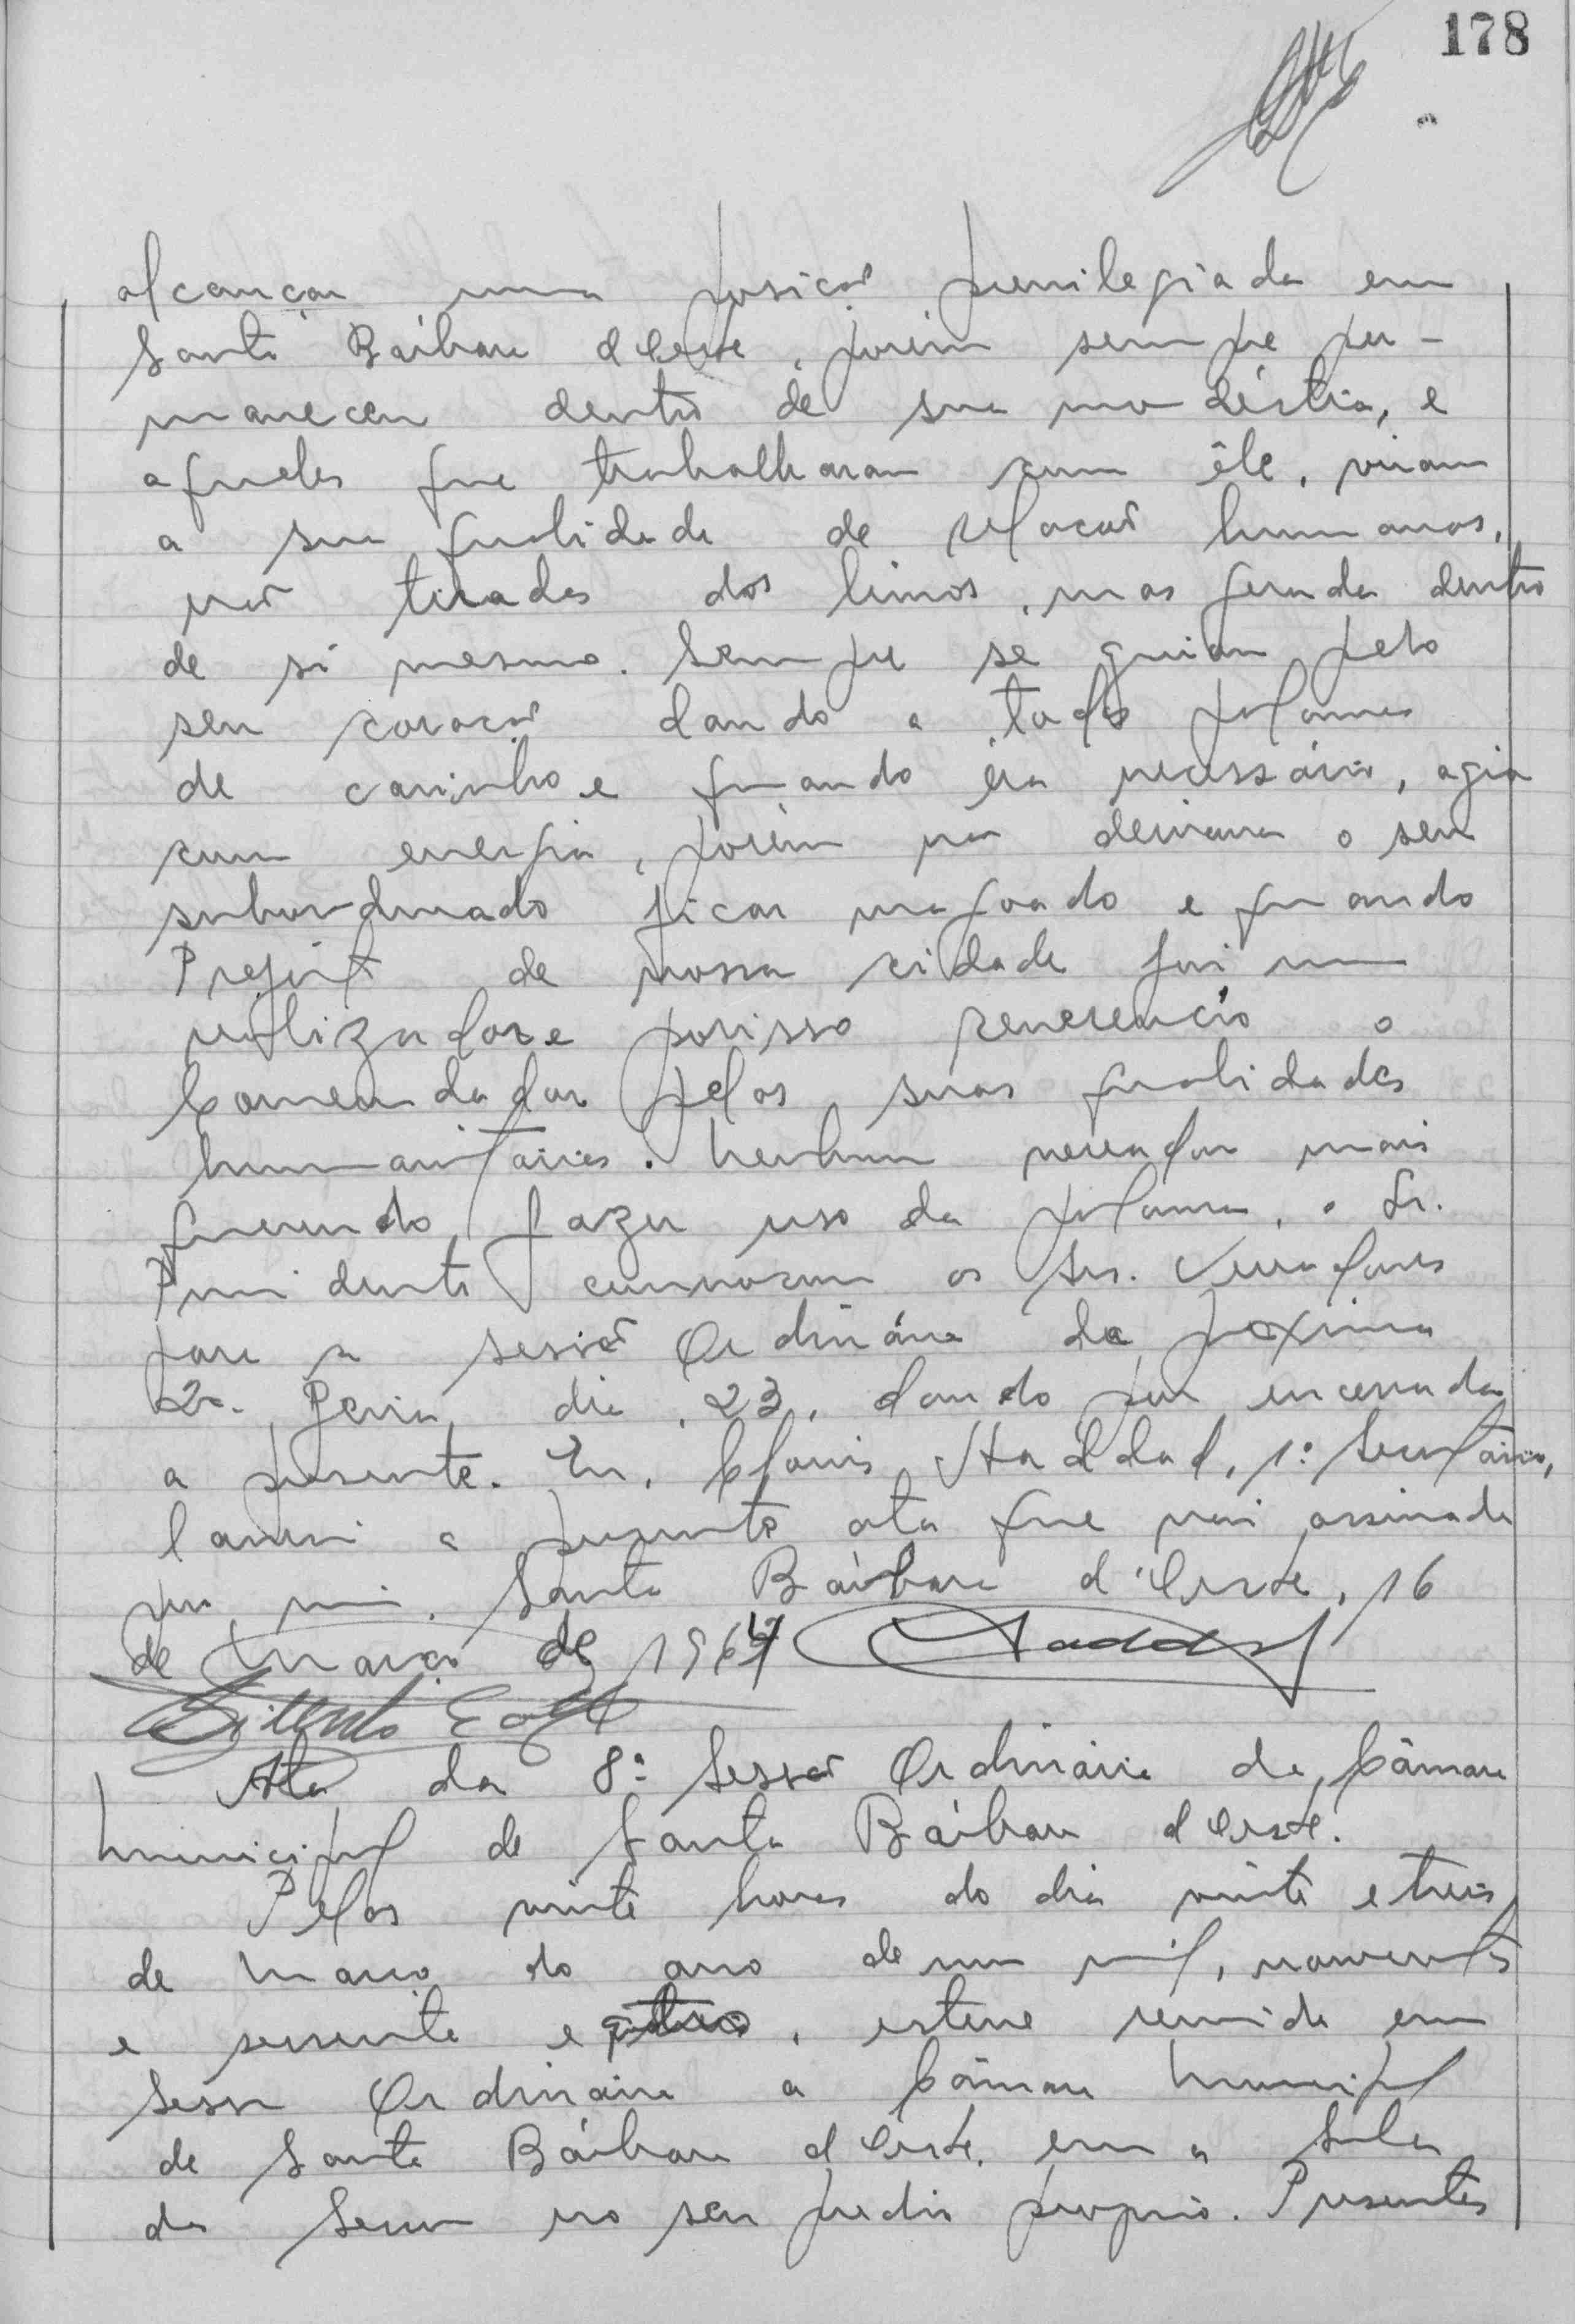 178
alcançou uma posição privilegiada em
Santa Bárbara d'Oeste, porém sempre per-
maneceu dentro de sua modéstia, e
aqueles que trabalharam com êle, viram
a sua qualidade de relação humanas,
não tiradas dos livros, mas gerada dentro
de si mesmo. Sempre se guiou pelo
seu coração dando a todos palavras
de carinho e quando éra necessário, agia
com energia, porém não deixava o seu
subordinado ficar magoado e quando
Prefeito de nossa cidade foi um
realizador e porisso reverencio o
Comendador pelas suas qualidades
humanitárias. Nenhum vereador mais
querendo fazer uso da palavra, o Sr.
Presidente convocou os Srs. Vereadores
para a sessão Ordinária da proxima
2a. feira, dia, 23, dando por encerrada
a presente. Eu, Clovis Haddad, 1º Secretário,
lavrei a presente ata que vai assinada
por mim. Santa Bárbara d'Oeste, 16
de Março de 1964 Haddad
Ata da 8ª Sessão Ordinária da Câmara
Municipal de Santa Bárbara d'Oeste.
Pelas vinte horas do dia vinte e treis
de Março do ano de um mil, novecentos
e sessenta e, esteve reunida em
Sessão Ordinária a Câmara Municipal
de Santa Bárbara d'Oeste, em a Sala
da Sessão no seu predio proprio. Presentes